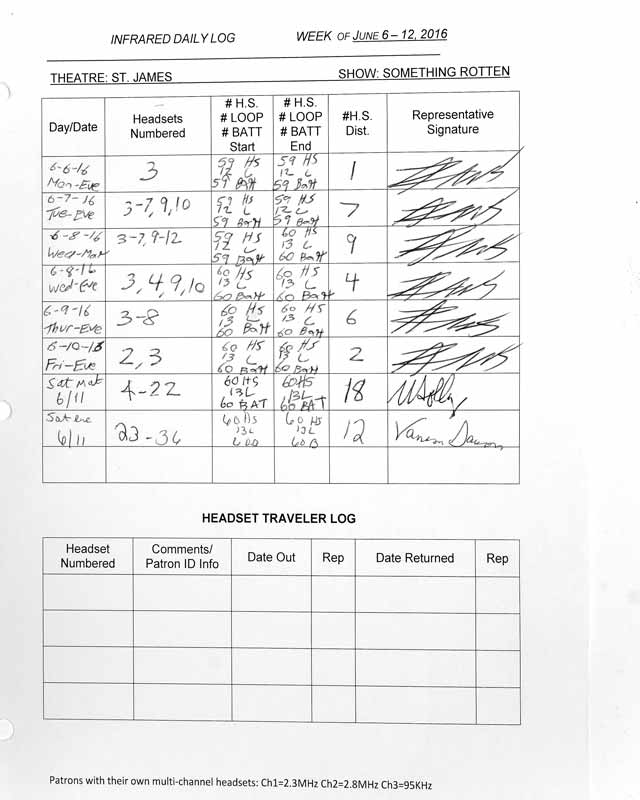 INFRARED DAILY LOG WEEK OF JUNE 6 – 12, 2016
THEATRE: ST. JAMES SHOW: SOMETHING ROTTEN
Day/Date Headsets Numbered # H.S. # LOOP # BATT Start # H.S. # LOOP # BATT End #H.S. Dist. Representative Signature
6-6-16 Mon-Eve 3 59 HS 12 L 59 Batt 59 HS 12 L 59 Batt 1
6-7-16 Tue-Eve 3-7, 9, 10 59 HS 12 L 59 Batt 59 HS 12 L 59 Batt 7
6-8-16 Wed-Mat 3-7, 9-12 59 HS 12 L 59 Batt 60 HS 13 L 60 Batt 9
6-8-16 Wed-Eve 3, 4, 9, 10 60 HS 13 L 60 Batt 60 HS 13 L 60 Batt 4
6-9-16 Thur-Eve 3-8 60 HS 13 L 60 Batt 60 HS 13 L 60 Batt 6
6-10-16 Fri-Eve 2, 3 60 HS 13 L 60 Batt 60 HS 13 L 60 Batt 2
Sat Mat 6/11 4-22 60 HS 13L 60 BAT 60HS 13L 60 BAT 18
Sat eve 6/11 23-36 60 HS 13L 60B 60 HS 13L 60 B 12
HEADSET TRAVELER LOG
Headset Numbered Comments/ Patron ID Info Date Out Rep Date Returned Rep
Patrons with their own multi-channel headsets: Ch1=2.3MHz Ch2=2.8MHz Ch3=95KHz